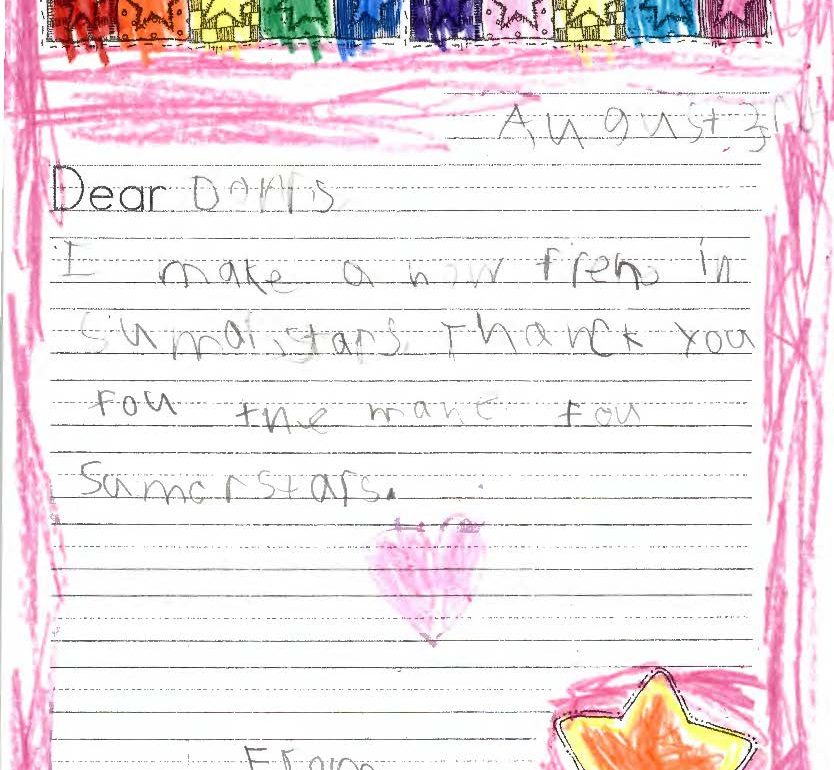 August 3rd
Dear
I make a now fren in
sumarstars Thanck you
fou the mane fou
Samerstars.
From